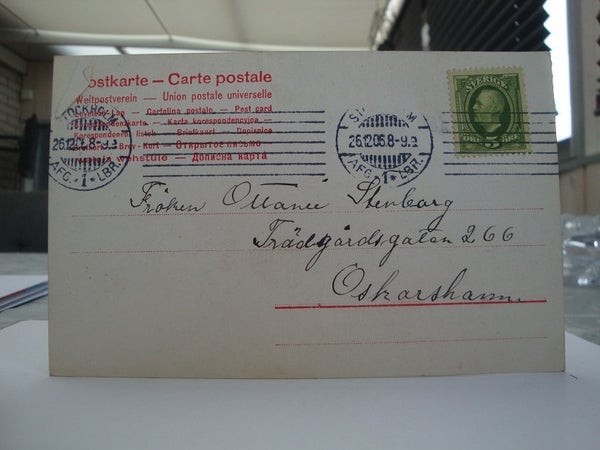 Postkarte — Carte postale
Weltpostverein — Union postale universelle
Cartolina postale. — Post card
Karta korespondencyjna —
Korespondenzkarte
listek — Briefkaart —
Brev-Kort — Открытое письмо
— Дописна карта
STOCKHOLM
26.12.06.8-9
AFG. 1 LBR.
26.12.06.8-9
AFG. 1 LBR.
SVERIGE
5
ÖRE
Fröken Ottanie Stenborg
Trädgårdsgatan 266
Oskarshamn